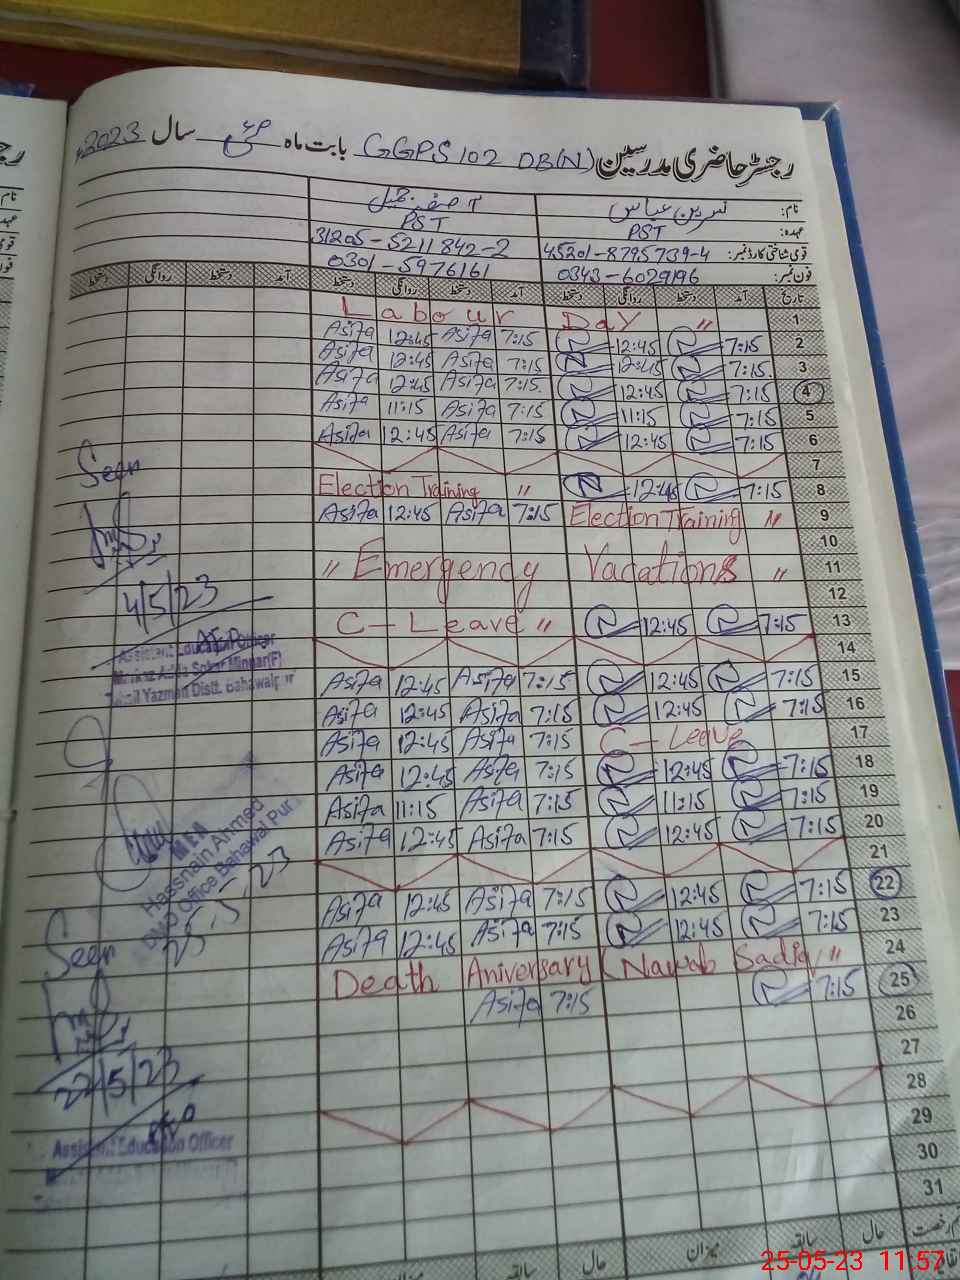 رجسٹر حاضری مدرسین GGPS 102 DB(N) بابت ماہ مئی سال 2023ء
نام: نسرین عباس
عہدہ: PST PST
قومی شناختی کارڈ نمبر: 45201-8795739-4 31205-5211842-2
فون نمبر: 0343-6029196 0301-5976161
تاریخ آمد دستخط روانگی دستخط آمد دستخط روانگی دستخط آمد دستخط روانگی دستخط
1 Labour Day "
2 7:15 12:45 7:15 Asifa 12:45 Asifa
3 7:15 12:45 7:15 Asifa 12:45 Asifa
4 7:15 12:45 7:15 Asifa 12:45 Asifa
5 7:15 11:15 7:15 Asifa 11:15 Asifa
6 7:15 12:45 7:15 Asifa 12:45 Asifa
7
8 7:15 12:45 Election Training "
9 Election Training " 7:15 Asifa 12:45 Asifa
10
11 " Emergency Vacations "
12
13 7:15 12:45 C-Leave "
14
15 7:15 12:45 7:15 Asifa 12:45 Asifa
16 7:15 12:45 7:15 Asifa 12:45 Asifa
17 C-Leave 7:15 Asifa 12:45 Asifa
18 7:15 12:45 7:15 Asifa 12:45 Asifa
19 7:15 11:15 7:15 Asifa 11:15 Asifa
20 7:15 12:45 7:15 Asifa 12:45 Asifa
21
22 7:15 12:45 7:15 Asifa 12:45 Asifa
23 7:15 12:45 7:15 Asifa 12:45 Asifa
24 Death Aniversary (Nawab Sadiq "
25 7:15 7:15 Asifa
26
27
28
29
30
31
Seen
4/5/23
Assistant Education Officer
Tehsil Yazman Distt. Bahawalpur
Hassnain Ahmed
MEA
DMO Office Bahawal Pur
25-5-23
Seen
22/5/23
AEO
Assistant Education Officer
رخصت حال سابقہ میزان حال سابقہ میزان
25-05-23 11:57